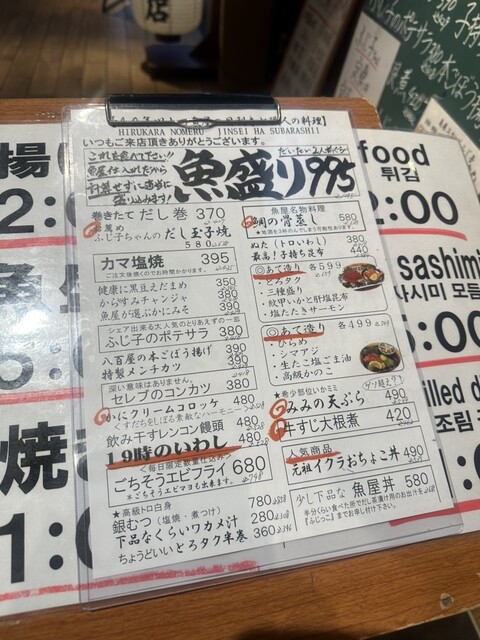 HIRUKARA NOMERU JINSEI HA SUBARASHII
いつもご来店頂きありがとうございます。
これも食べて下さい!!
魚屋仕入れだから
計算せずに適当に
盛り込みます!
だいたい2人前くらい
魚盛り995
巻きたて だし巻 370
薦め
ふじ子ちゃんの だし玉子焼
580
カマ塩焼 395
ご注文後焼くのでお時間かかります。
健康に黒豆えだまめ 350
からすみチャンジャ 380
魚屋が選ぶかにみそ 390
シェア出来る大人気のとりあえずの一品
ふじ子のポテサラ 380
八百屋の本ごぼう揚げ 390
特製メンチカツ 390
深い意味はありません。
セレブのコンカツ 380
かにクリームコロッケ 480
<すだちをしぼる素敵なハーモニー>
飲み干すレンコン饅頭 480
19時のいわし 480
<毎日限定数量仕込み>
ごちそうエビフライ 680
※ごちそうエビマヨも出来ます。
★高級トロ白身
銀むつ (塩焼・煮つけ) 780
下品なくらいワカメ汁 280
ちょうどいいとろタク半巻 360
魚屋名物料理
鯛の骨蒸し 580
ぬた (トロいわし) 380
最高!子持ち昆布 440
◎あて造り 各599
・とろタク
・三種盛り
・紋甲いかと肝塩昆布
・塩たたきサーモン
◎あて造り 各499
・ひらめ
・シマアジ
・生たこ塩ごま油
・高級かのこ
★希少部位いかミミ
みみの天ぷら 490
牛すじ大根煮 420
人気商品
元祖イクラおちょこ丼 490
少し下品な 魚屋丼 580
半分くらい食べた所でだし茶漬け用のお出汁を
『ふじっこ』までお申し付け下さい。
揚
food
튀김
2:00
sashimi
사시미 모듬
焼
조림